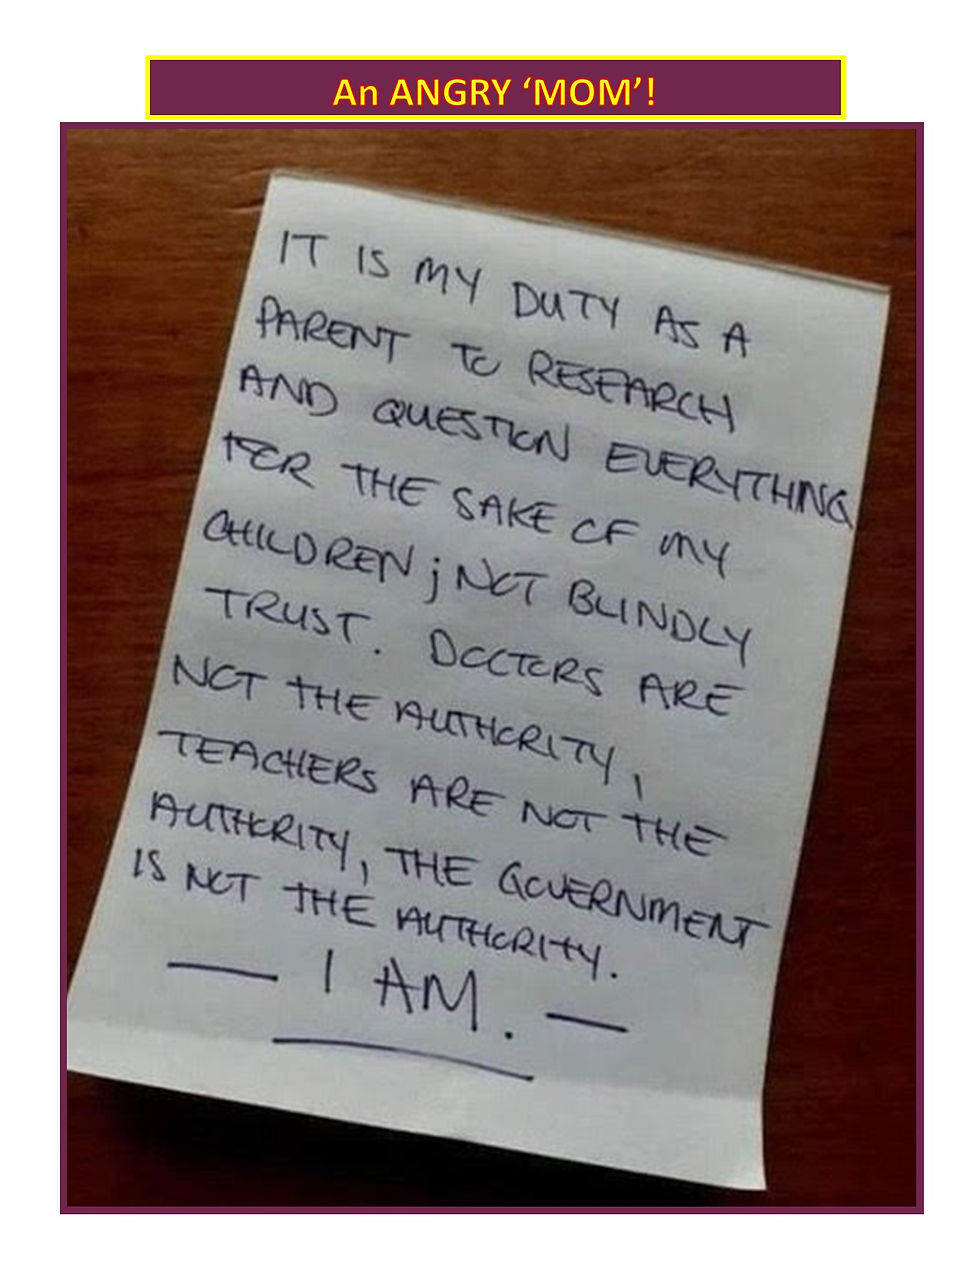 An ANGRY ‘MOM’!
IT IS MY DUTY AS A
PARENT TO RESEARCH
AND QUESTION EVERYTHING
FOR THE SAKE OF MY
CHILDREN; NOT BLINDLY
TRUST. DOCTORS ARE
NOT THE AUTHORITY,
TEACHERS ARE NOT THE
AUTHORITY, THE GOVERNMENT
IS NOT THE AUTHORITY.
— I AM. —